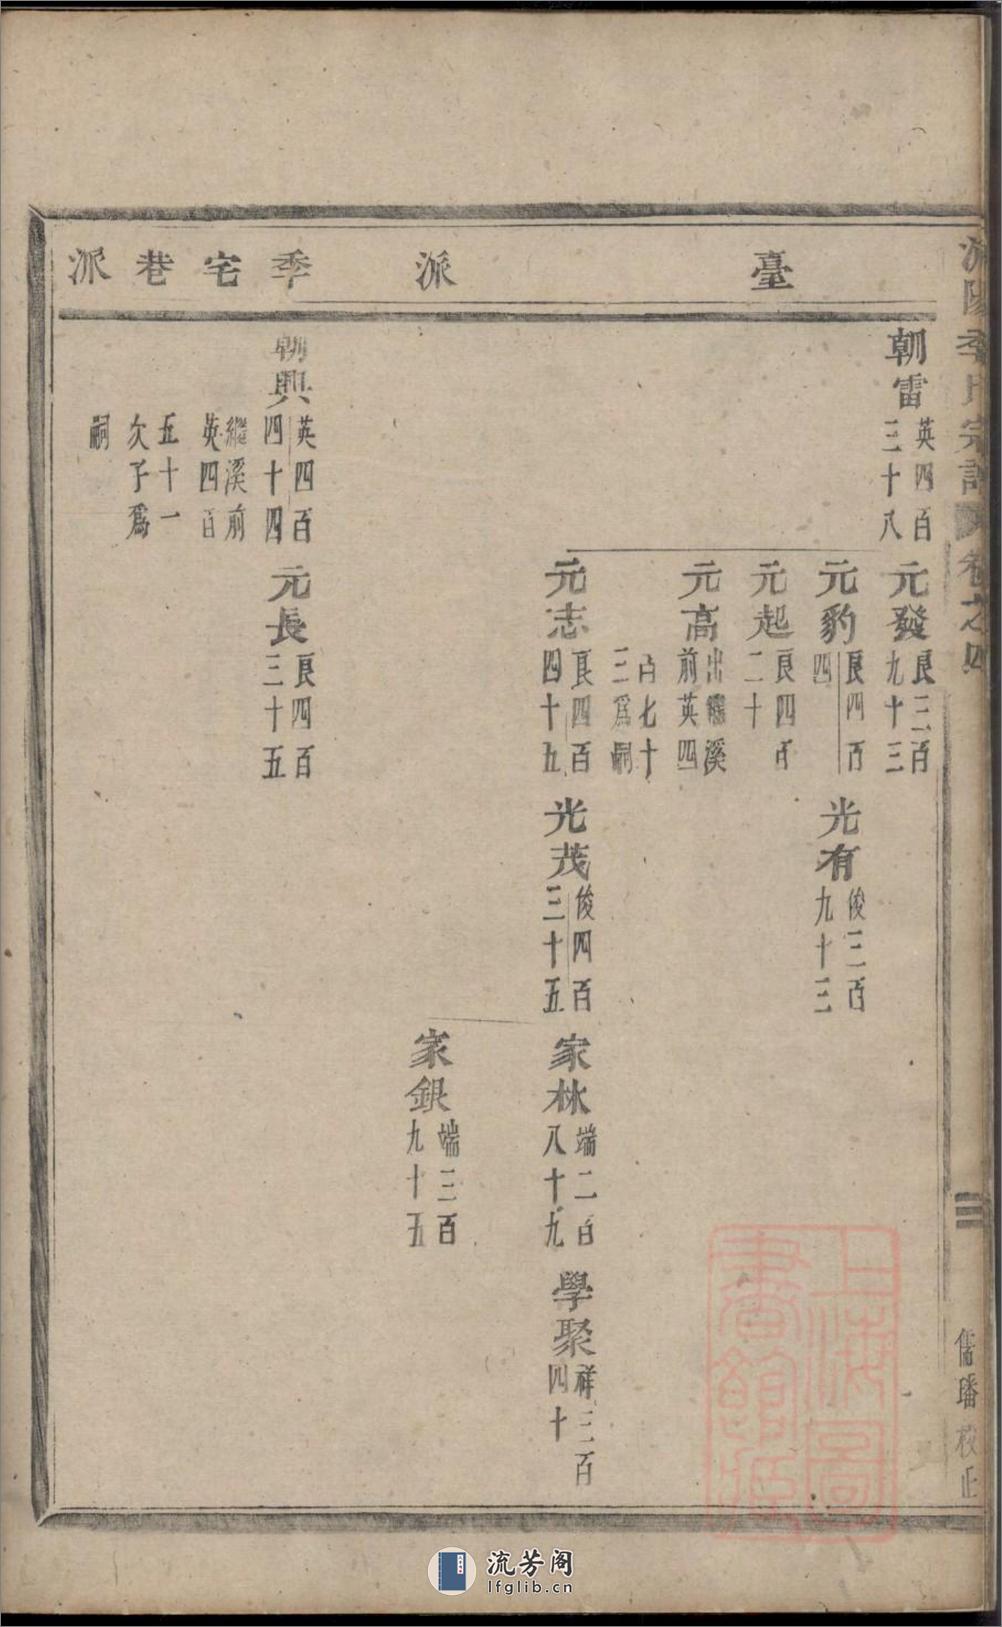 季氏宗譜
卷之四
三
儒璠校正
臺
派
季宅巷派
朝雷
英四百
三十八
元發
良三百
九十三
元豹
良四百
四
光有
俊三百
九十三
元起
良四百
二十
元高
出繼溪
前英四
百七十
三爲嗣
元志
良四百
四十五
光茂
俊四百
三十五
家林
端二百
八十九
學聚
祥三百
四十
家銀
端三百
九十五
朝興
英四百
四十四
元長
良四百
三十五
繼溪前
英四百
五十一
次子爲
嗣
上海圖
書館藏
流芳阁
lfglib.cn